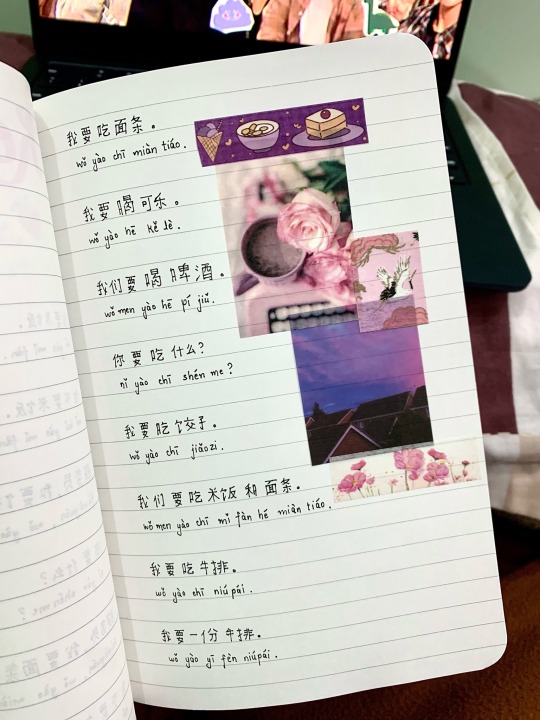 我要吃面条。
wǒ yào chī miàn tiáo.
我要喝可乐。
wǒ yào hē kě lè.
我们要喝啤酒。
wǒ men yào hē pí jiǔ.
你要吃什么?
nǐ yào chī shén me?
我要吃饺子。
wǒ yào chī jiǎozi.
我们要吃米饭和面条。
wǒ men yào chī mǐ fàn hé miàn tiáo.
我要吃牛排。
wǒ yào chī niúpái.
我要一份牛排。
wǒ yào yī fèn niúpái.